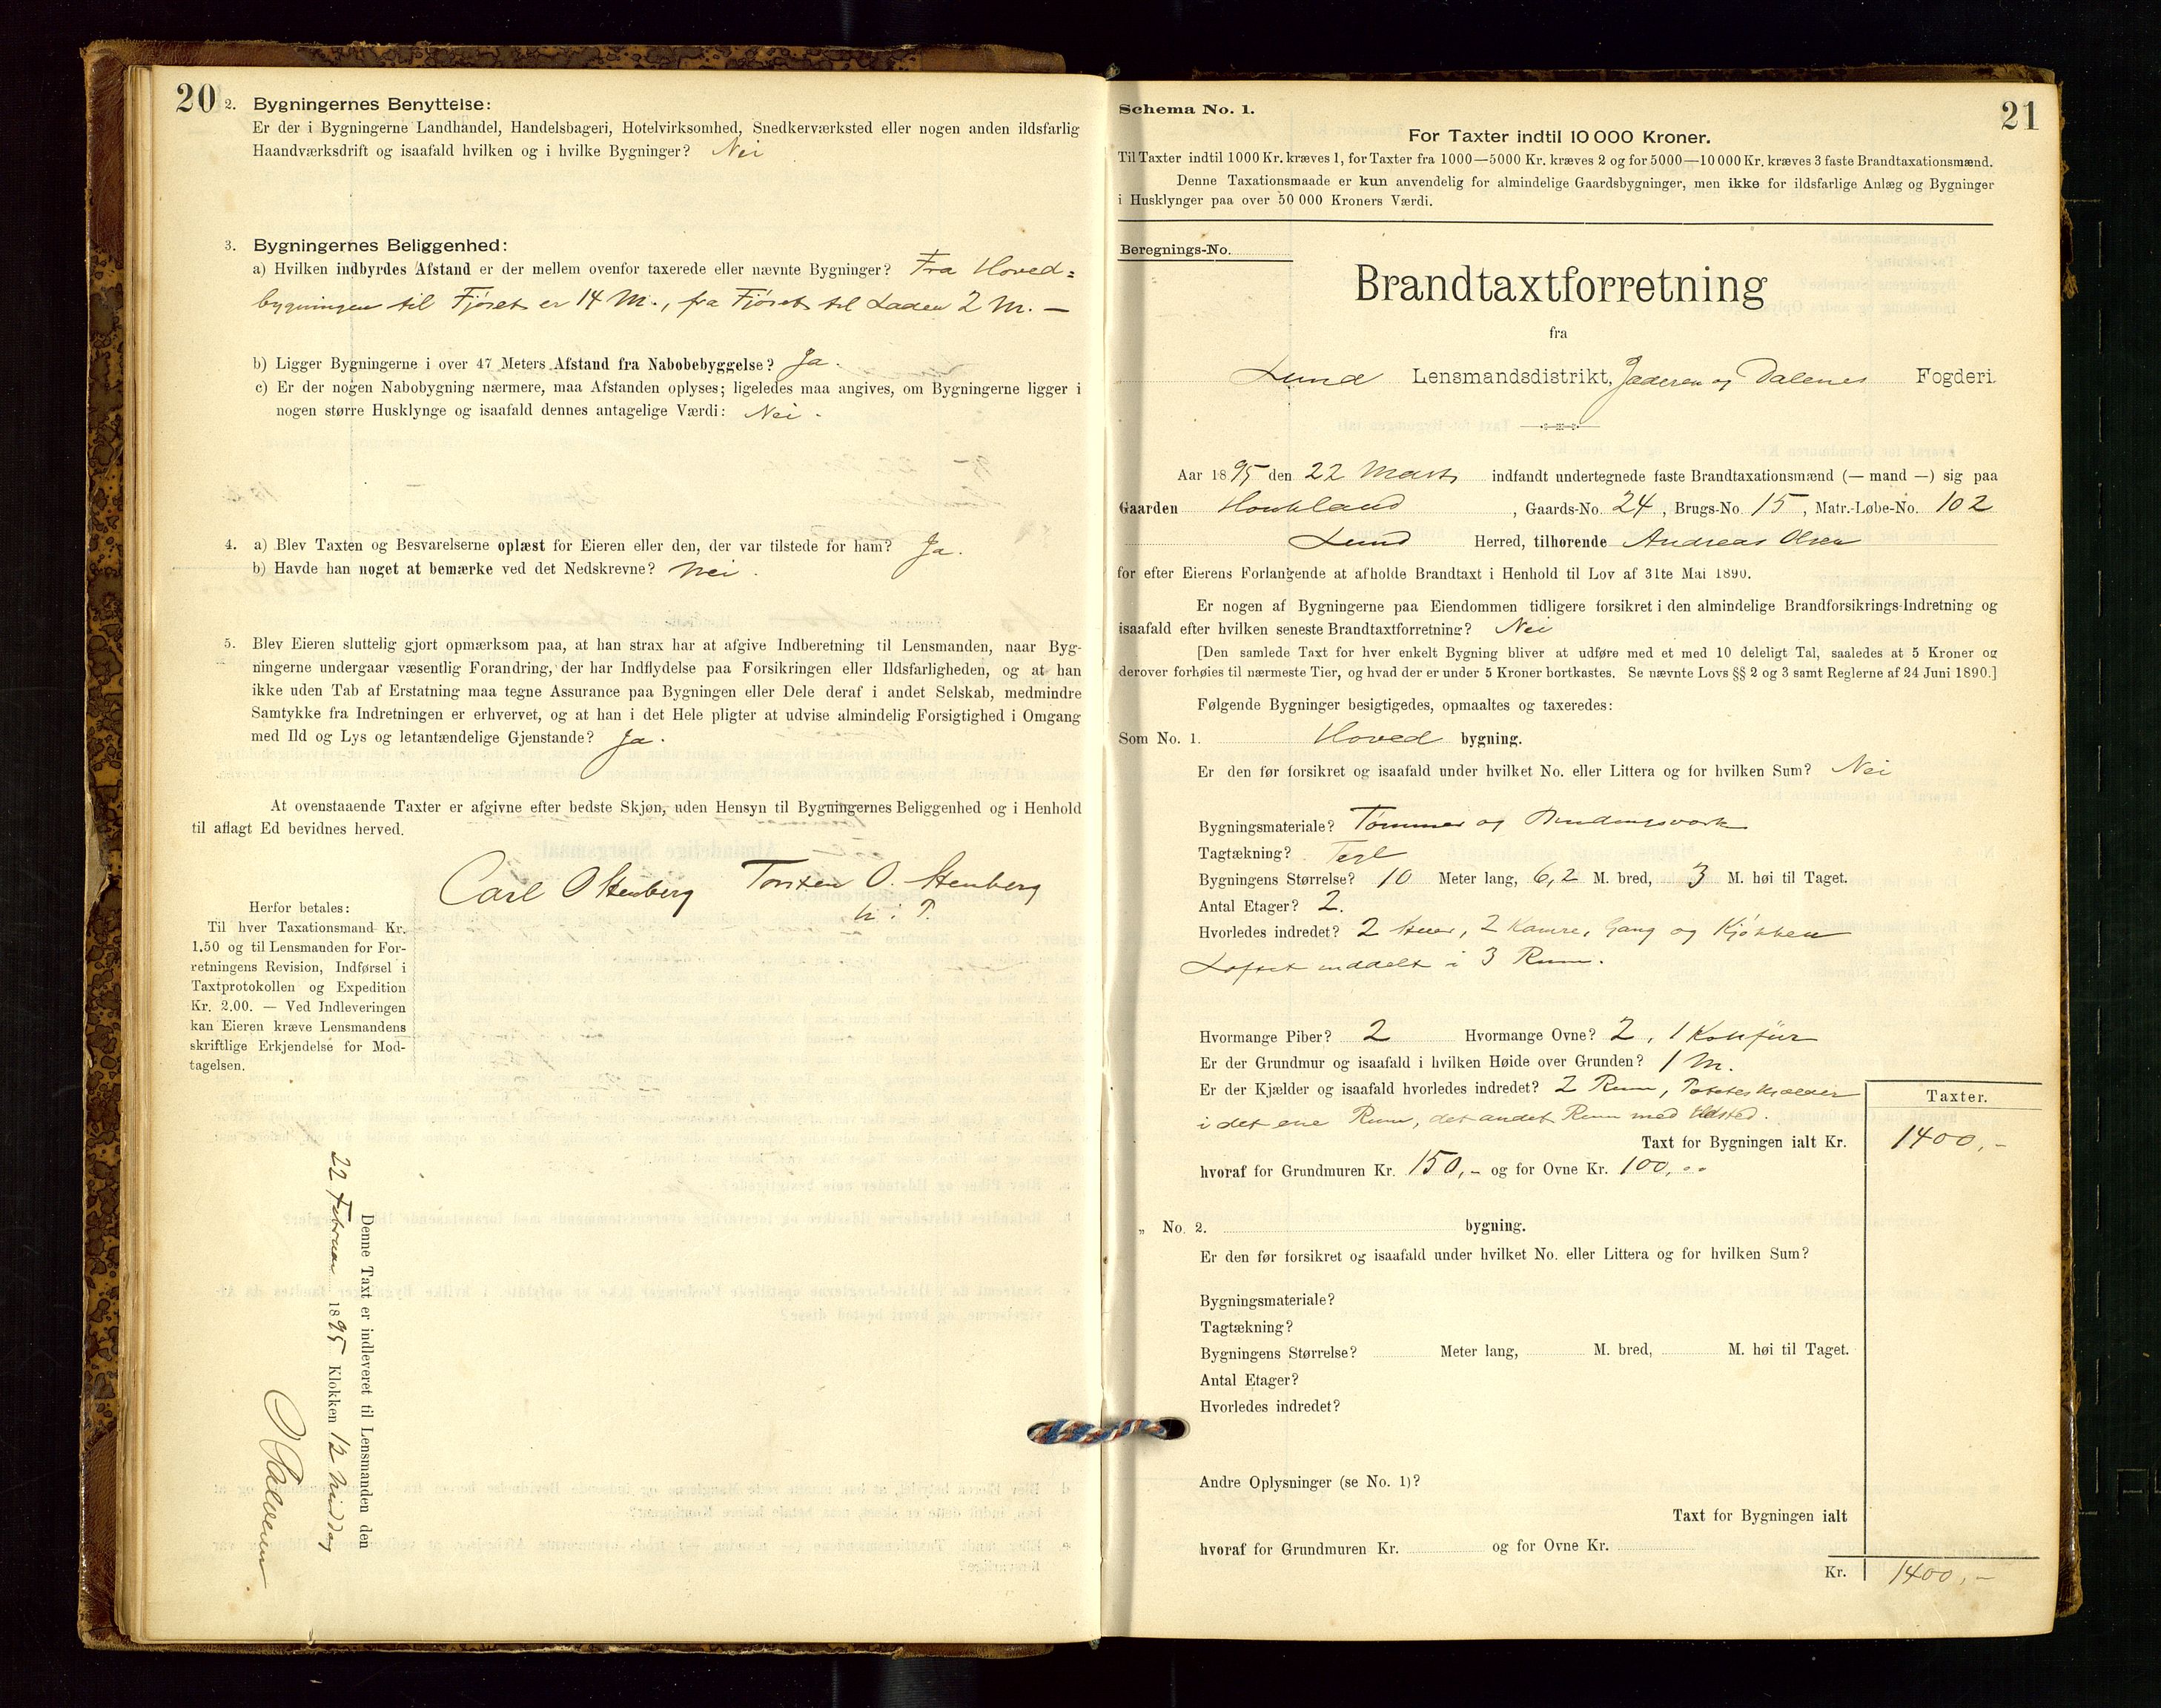 20
2. Bygningernes Benyttelse:
Er der i Bygningerne Landhandel, Handelsbageri, Hotelvirksomhed, Snedkerværksted eller nogen anden ildsfarlig
Haandværksdrift og isaafald hvilken og i hvilke Bygninger? Nei
3. Bygningernes Beliggenhed:
a) Hvilken indbyrdes Afstand er der mellem ovenfor taxerede eller nævnte Bygninger? Fra Hoved=
bygningen til Fjøset er 14 M., fra Fjøset til Laden 2 M. —
b) Ligger Bygningerne i over 47 Meters Afstand fra Nabobebyggelse? Ja.
c) Er der nogen Nabobygning nærmere, maa Afstanden oplyses; ligeledes maa angives, om Bygningerne ligger i
nogen større Husklynge og isaafald dennes antagelige Værdi: Nei.
4. a) Blev Taxten og Besvarelserne oplæst for Eieren eller den, der var tilstede for ham? Ja.
b) Havde han noget at bemærke ved det Nedskrevne? Nei.
5. Blev Eieren sluttelig gjort opmærksom paa, at han strax har at afgive Indberetning til Lensmanden, naar Byg-
ningerne undergaar væsentlig Forandring, der har Indflydelse paa Forsikringen eller Ildsfarligheden, og at han
ikke uden Tab af Erstatning maa tegne Assurance paa Bygningen eller Dele deraf i andet Selskab, medmindre
Samtykke fra Indretningen er erhvervet, og at han i det Hele pligter at udvise almindelig Forsigtighed i Omgang
med Ild og Lys og letantændelige Gjenstande? Ja.
At ovenstaaende Taxter er afgivne efter bedste Skjøn, uden Hensyn til Bygningernes Beliggenhed og i Henhold
til aflagt Ed bevidnes herved.
Carl O Stenberg Torsten O. Stenberg
Herfor betales:
Til hver Taxationsmand Kr.
1.50 og til Lensmanden for For-
retningens Revision, Indførsel i
Taxtprotokollen og Expedition
Kr. 2.00. — Ved Indleveringen
kan Eieren kræve Lensmandens
skriftlige Erkjendelse for Mod-
tagelsen.
Denne Taxt er indleveret til Lensmanden den
22 Februar 1895 Klokken 12 Middag
21
Schema No. 1.
For Taxter indtil 10 000 Kroner.
Til Taxter indtil 1000 Kr. kræves 1, for Taxter fra 1000—5000 Kr. kræves 2 og for 5000—10 000 Kr. kræves 3 faste Brandtaxationsmænd.
Denne Taxationsmaade er kun anvendelig for almindelige Gaardsbygninger, men ikke for ildsfarlige Anlæg og Bygninger
i Husklynger paa over 50 000 Kroners Værdi.
Beregnings-No.
Brandtaxtforretning
fra
Lund Lensmandsdistrikt, Jæderen og Dalenes Fogderi.
Aar 1895 den 22 Marts indfandt undertegnede faste Brandtaxationsmænd (— mand —) sig paa
Gaarden Houkland, Gaards-No. 24, Brugs-No. 15, Matr.-Løbe-No. 102
Lund Herred, tilhørende Andreas Olsen
for efter Eierens Forlangende at afholde Brandtaxt i Henhold til Lov af 31te Mai 1890.
Er nogen af Bygningerne paa Eiendommen tidligere forsikret i den almindelige Brandforsikrings-Indretning og
isaafald efter hvilken seneste Brandtaxtforretning? Nei
[Den samlede Taxt for hver enkelt Bygning bliver at udføre med et med 10 deleligt Tal, saaledes at 5 Kroner og
derover forhøies til nærmeste Tier, og hvad der er under 5 Kroner bortkastes. Se nævnte Lovs §§ 2 og 3 samt Reglerne af 24 Juni 1890.]
Følgende Bygninger besigtigedes, opmaaltes og taxeredes:
Som No. 1. Hoved bygning.
Er den før forsikret og isaafald under hvilket No. eller Littera og for hvilken Sum? Nei
Bygningsmateriale? Tømmer og Bindingsværk
Tagtækning? Tegl
Bygningens Størrelse? 10 Meter lang, 6,2 M. bred, 3 M. høi til Taget.
Antal Etager? 2.
Hvorledes indredet? 2 Stuer, 2 Kamre, Gang og Kjøkken
Loftet inddelt i 3 Rum.
Hvormange Piber? 2 Hvormange Ovne? 2, 1 Komfür
Er der Grundmur og isaafald i hvilken Høide over Grunden? 1 M.
Er der Kjælder og isaafald hvorledes indredet? 2 Rum, Poteteskjælder
i det ene Rum, det andet Rum med Ildsted.
Taxter.
Taxt for Bygningen ialt Kr. 1400,-
hvoraf for Grundmuren Kr. 150,- og for Ovne Kr. 100,00
„ No. 2. bygning.
Er den før forsikret og isaafald under hvilket No. eller Littera og for hvilken Sum?
Bygningsmateriale?
Tagtækning?
Bygningens Størrelse? Meter lang, M. bred, M. høi til Taget.
Antal Etager?
Hvorledes indredet?
Andre Oplysninger (se No. 1)?
Taxt for Bygningen ialt
hvoraf for Grundmuren Kr. og for Ovne Kr.
Kr. 1400,-